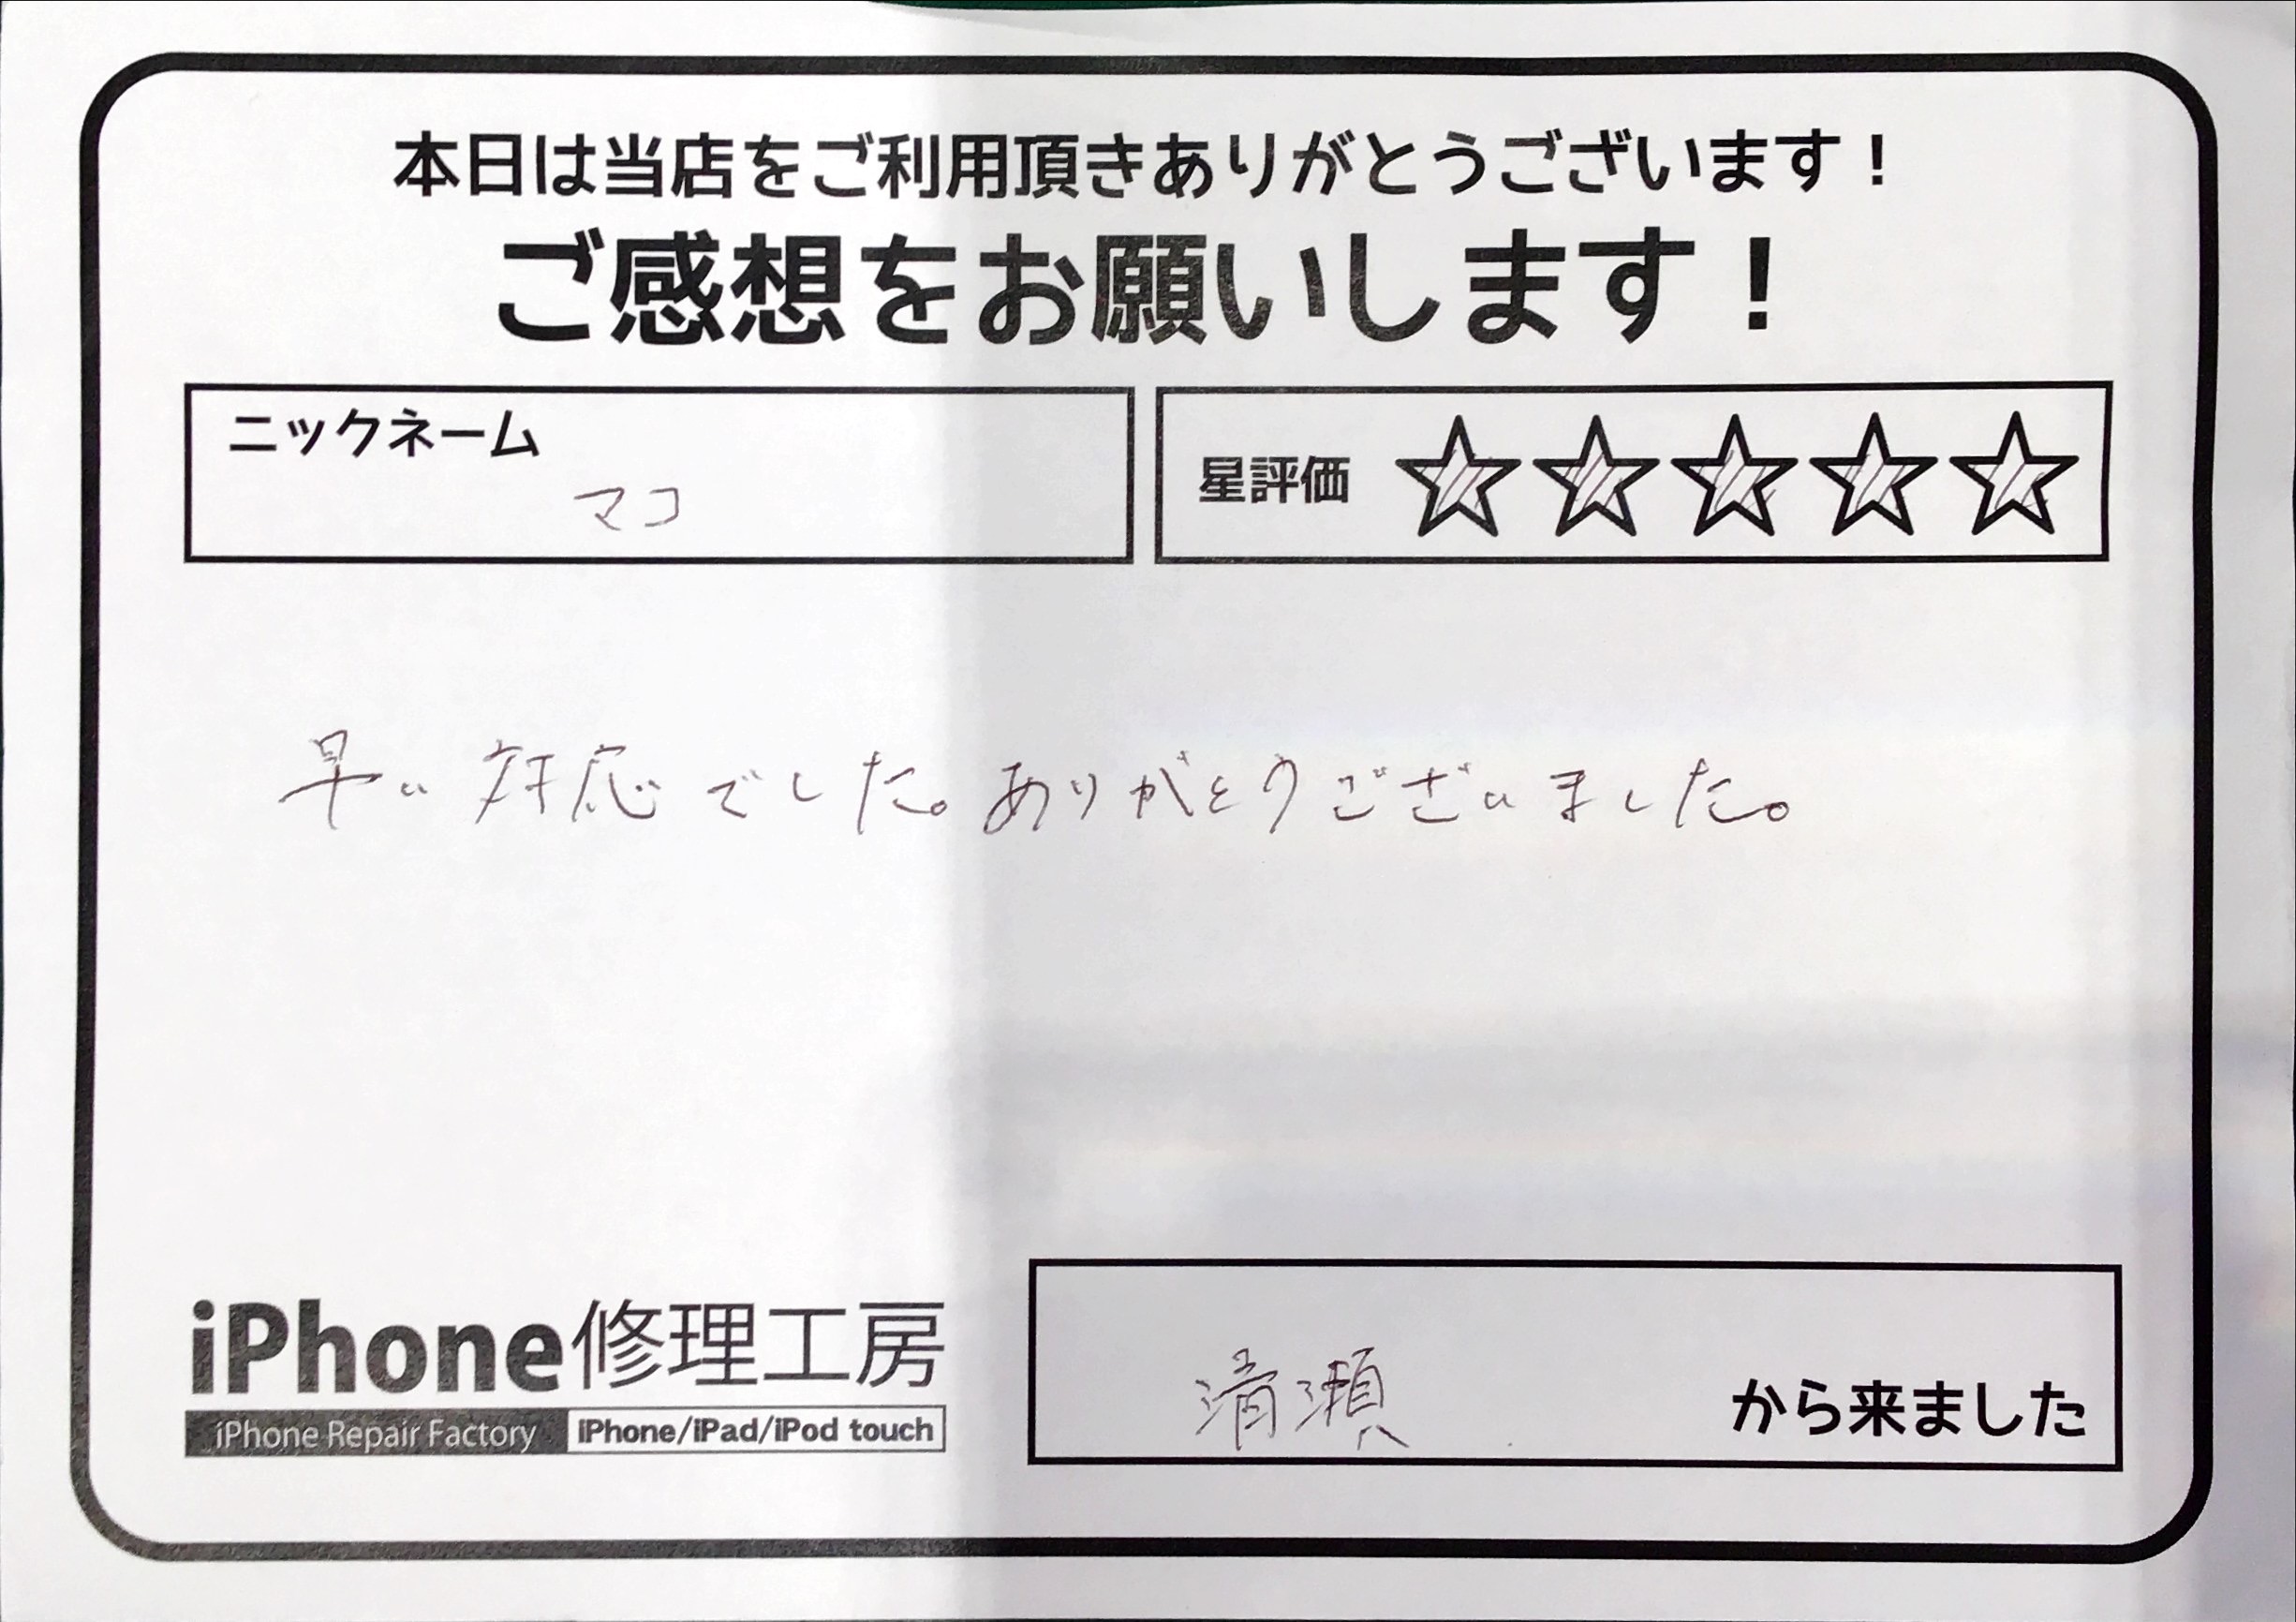 本日は当店をご利用頂きありがとうございます！
ご感想をお願いします！
ニックネーム
マコ
星評価 ☆☆☆☆☆
早い対応でした。ありがとうございました。
iPhone修理工房
iPhone Repair Factory iPhone/iPad/iPod touch
清瀬 から来ました